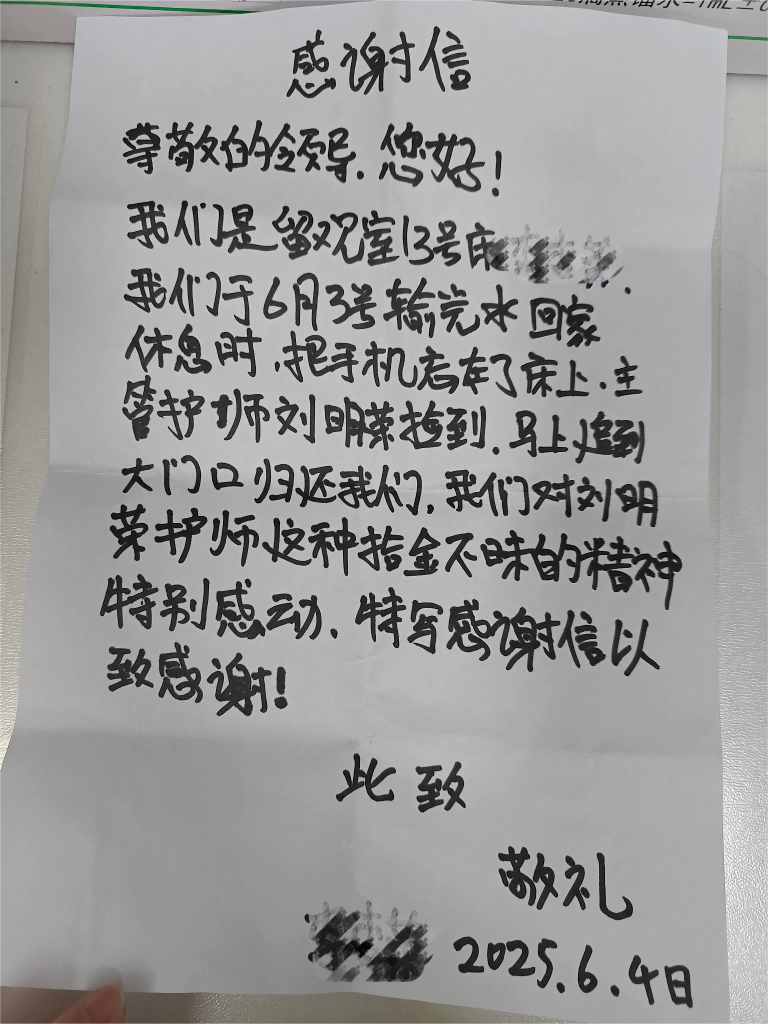 感谢信
尊敬的领导,您好!
我们是留观室13号床
我们于6月3号输完水回家
休息时,把手机忘在了床上.主
管护师刘明荣捡到,马上追到
大门口归还我们,我们对刘明
荣护师这种拾金不昧的精神
特别感动,特写感谢信以
致感谢!
此致
敬礼
2025.6.4日